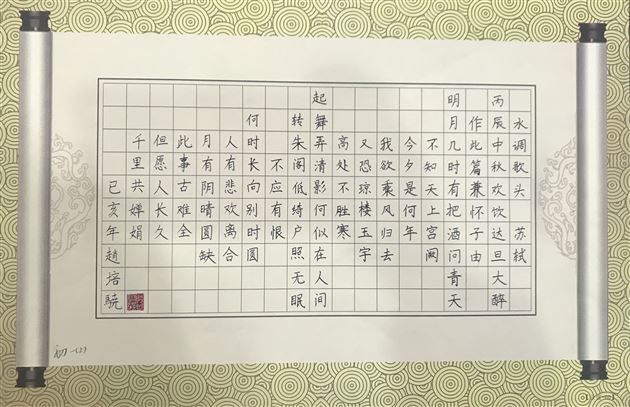 水调歌头 苏轼
丙辰中秋欢饮达旦大醉
作此篇兼怀子由
明月几时有把酒问青天
不知天上宫阙
今夕是何年
我欲乘风归去
又恐琼楼玉宇
高处不胜寒
起舞弄清影何似在人间
转朱阁低绮户照无眠
不应有恨
何时长向别时圆
人有悲欢离合
月有阴晴圆缺
此事古难全
但愿人长久
千里共婵娟
己亥年趙培驍